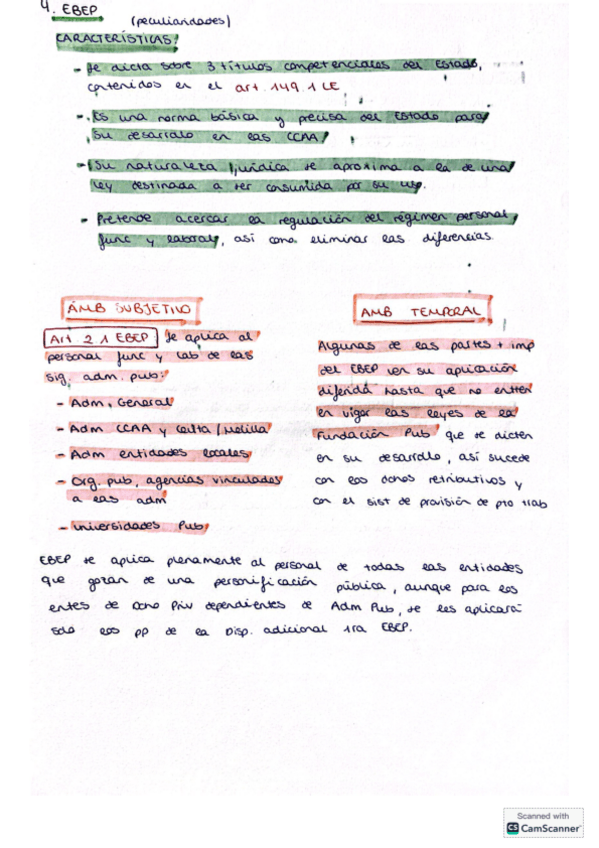 4. EBEP
(peculiaridades)
CARACTERÍSTICAS:
- Se dicta sobre 3 títulos competenciales del Estado,
contenidos en el art. 149.1 CE
- Es una norma básica y precisa del Estado para
su desarrollo en las CCAA
- Su naturaleza jurídica se aproxima a la de una
ley destinada a ser consumida por su uso.
- Pretende acercar la regulación del régimen personal
func y laboral, así como eliminar las diferencias.
ÁMB SUBJETIVO
Art 2.1 EBEP Se aplica al
personal func y lab de las
sig. adm. pub:
- Adm. General
- Adm CCAA y Ceuta/Melilla
- Adm entidades locales
- Org. pub, agencias vinculados
a las adm
- Universidades Pub
AMB TEMPORAL
Algunas de las partes + imp
del EBEP ven su aplicación
diferida hasta que no entren
en vigor las leyes de la
Fundación Pub que se dicten
en su desarrollo, así sucede
con los dchos retributivos y
con el sist de provisión de pto trab
EBEP se aplica plenamente al personal de todas las entidades
que gozan de una personificación pública, aunque para los
entes de Dcho Priv dependientes de Adm Pub, se les aplicará
solo los pp de la Disp. adicional 1ra EBEP.
Scanned with
CS CamScanner